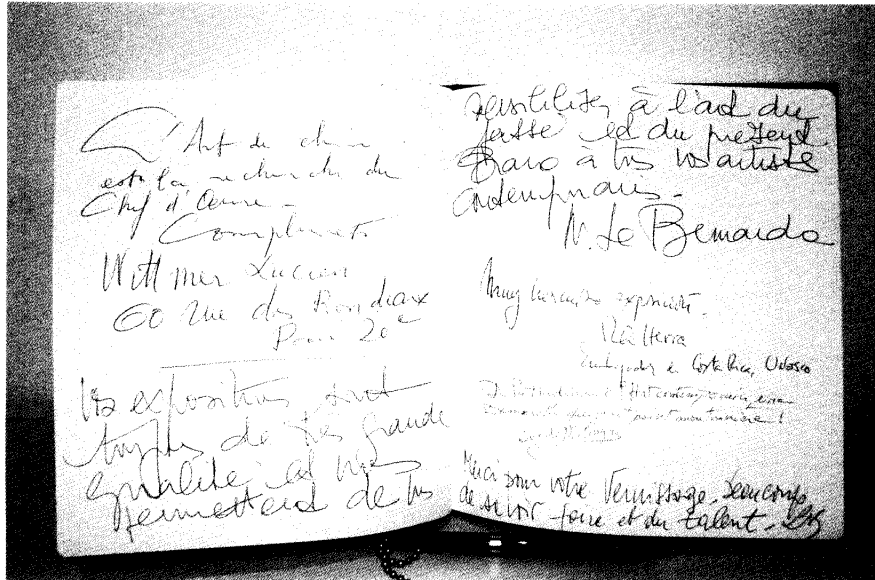 L'Art de chine
est la recherche du
Chef d'Œuvre -
Compliments
Wittmer Lucien
60 Rue des Rondeaux
Paris 20e
Vos expositions sont
toujours de très grande
qualité et nous
permettent de ns
sensibiliser à l'art du
passé et du présent.
Bravo à ts vos artistes
contemporains -
M. Le Bernardo
Muy hermosa exposición.
Herra
Embajador de Costa Rica, Unesco
Merci pour votre Vernissage. Beaucoup
de savoir faire et du talent.